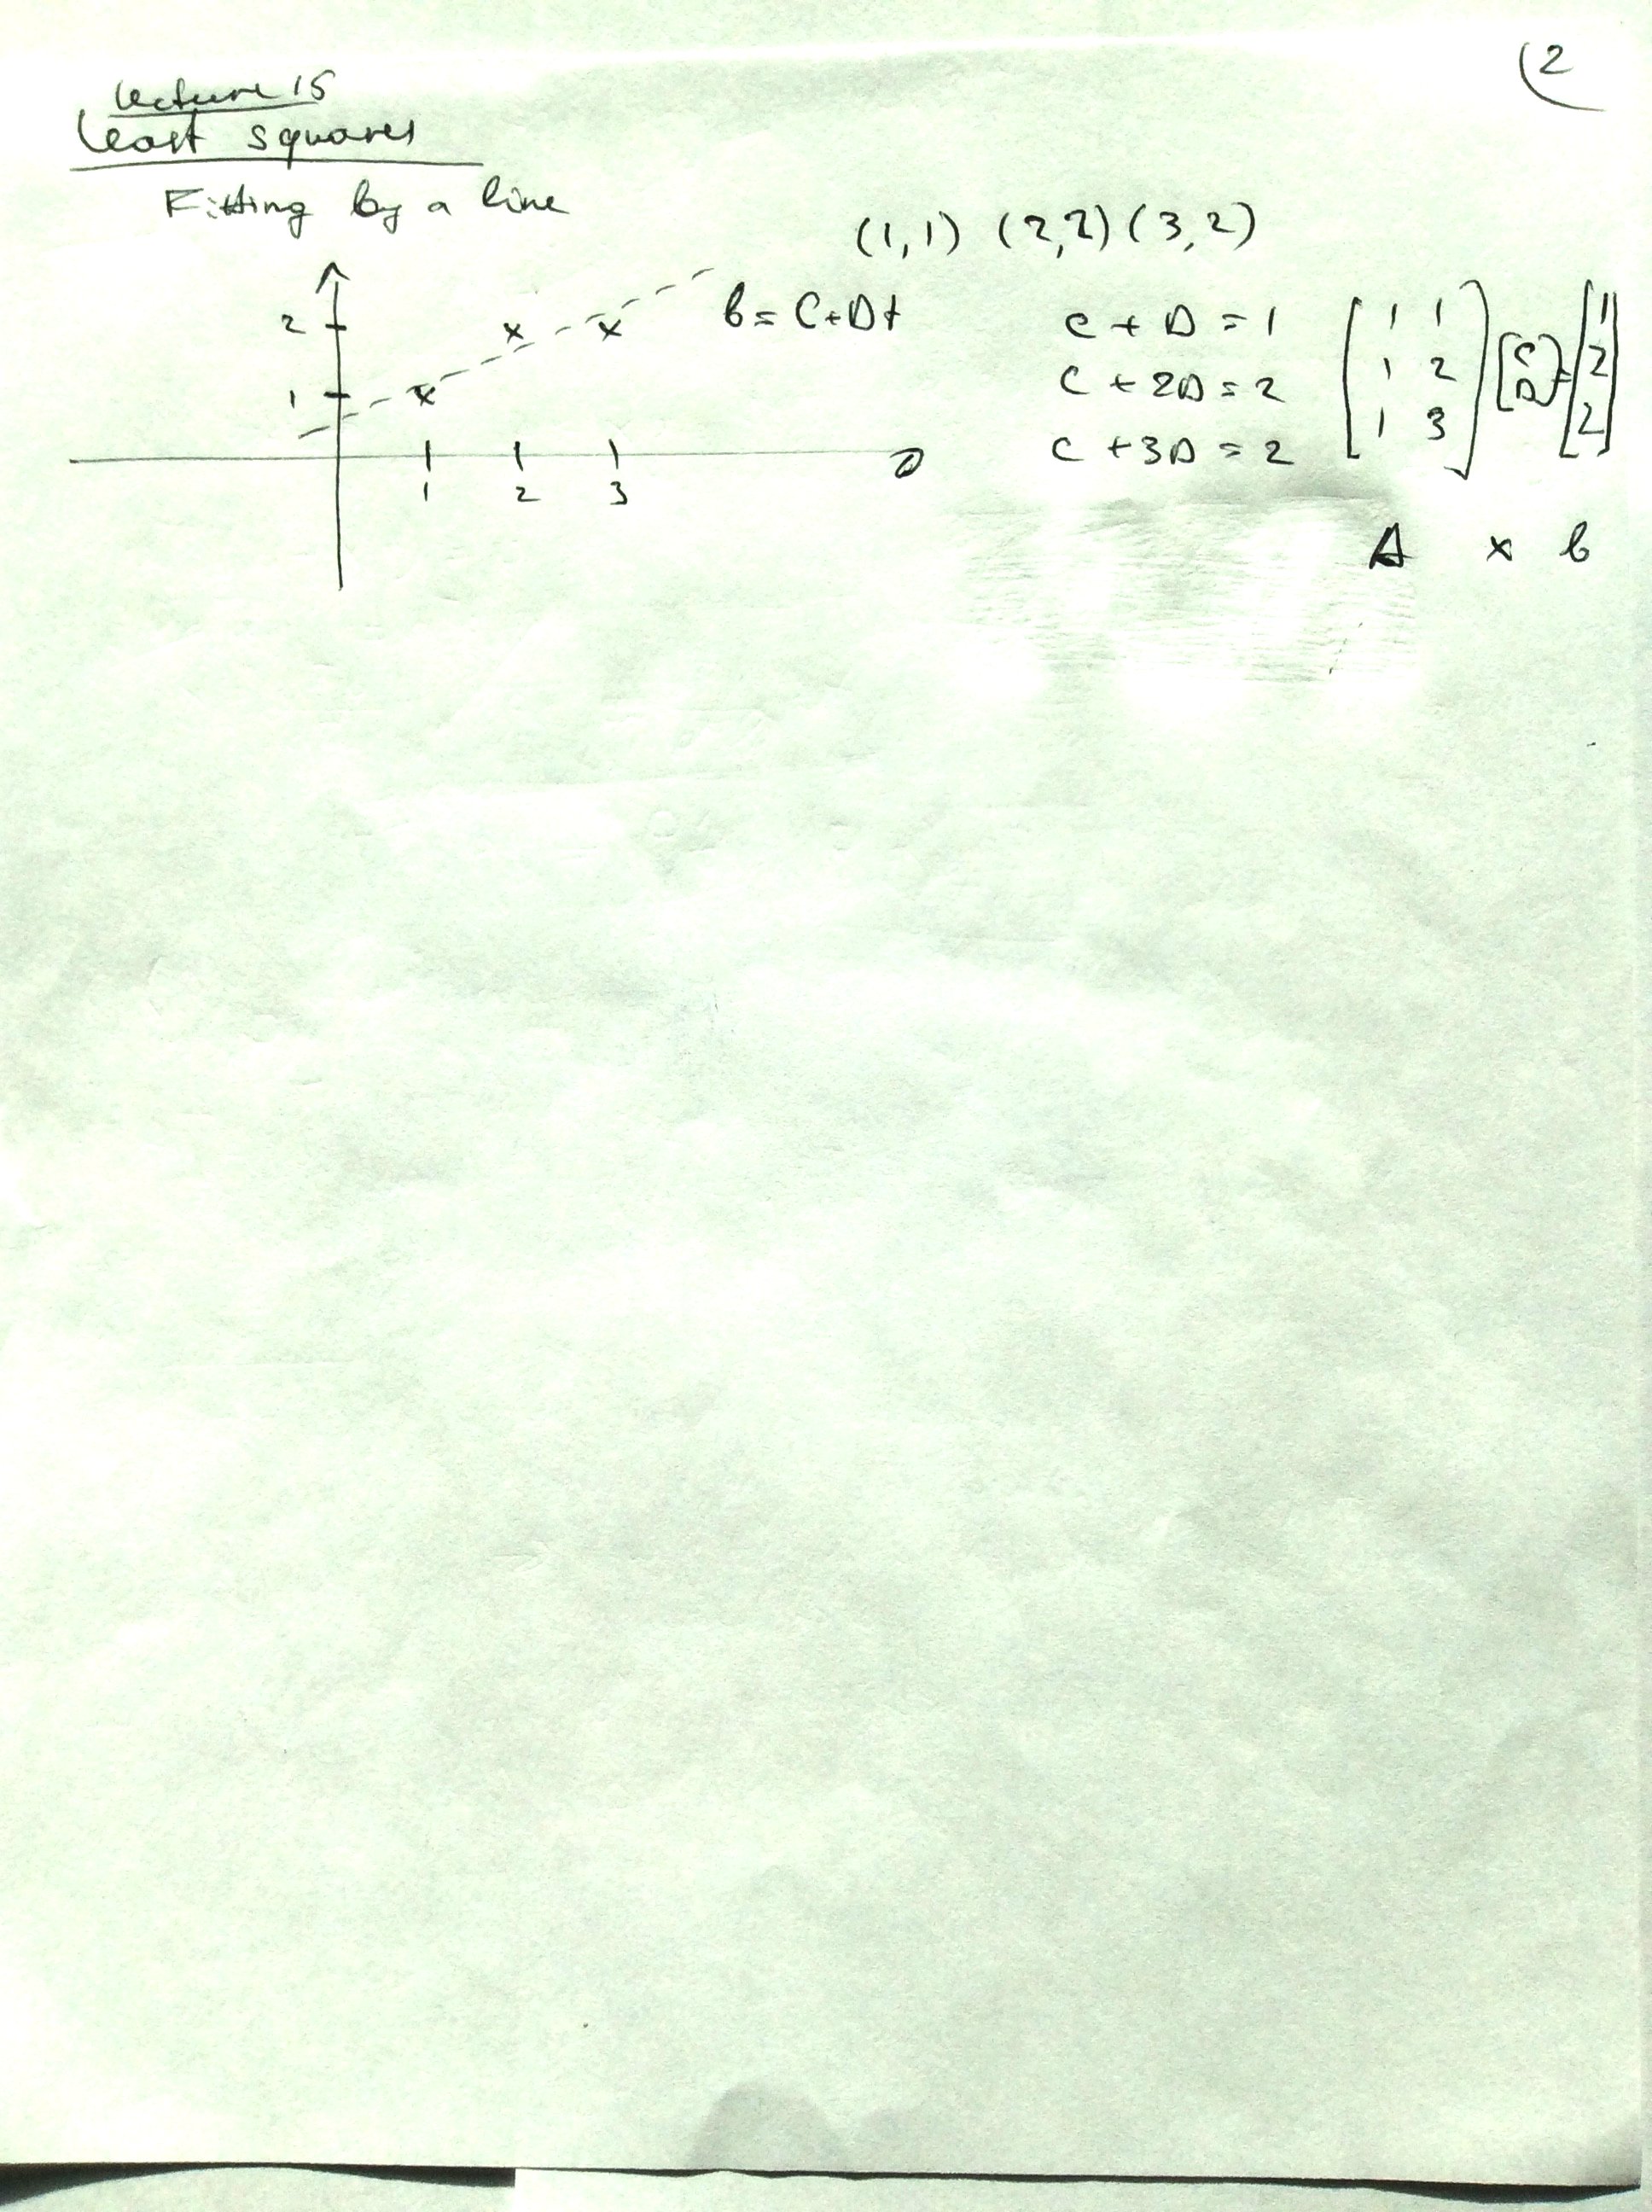 (2
Lecture 15
Least squares
Fitting by a line
(1,1) (2,2) (3,2)
2
1
1 2 3
b = C+Dt
C + D = 1
C + 2D = 2
C + 3D = 2
[1 1
1 2
1 3] [C
D] = [1
2
2]
A x b